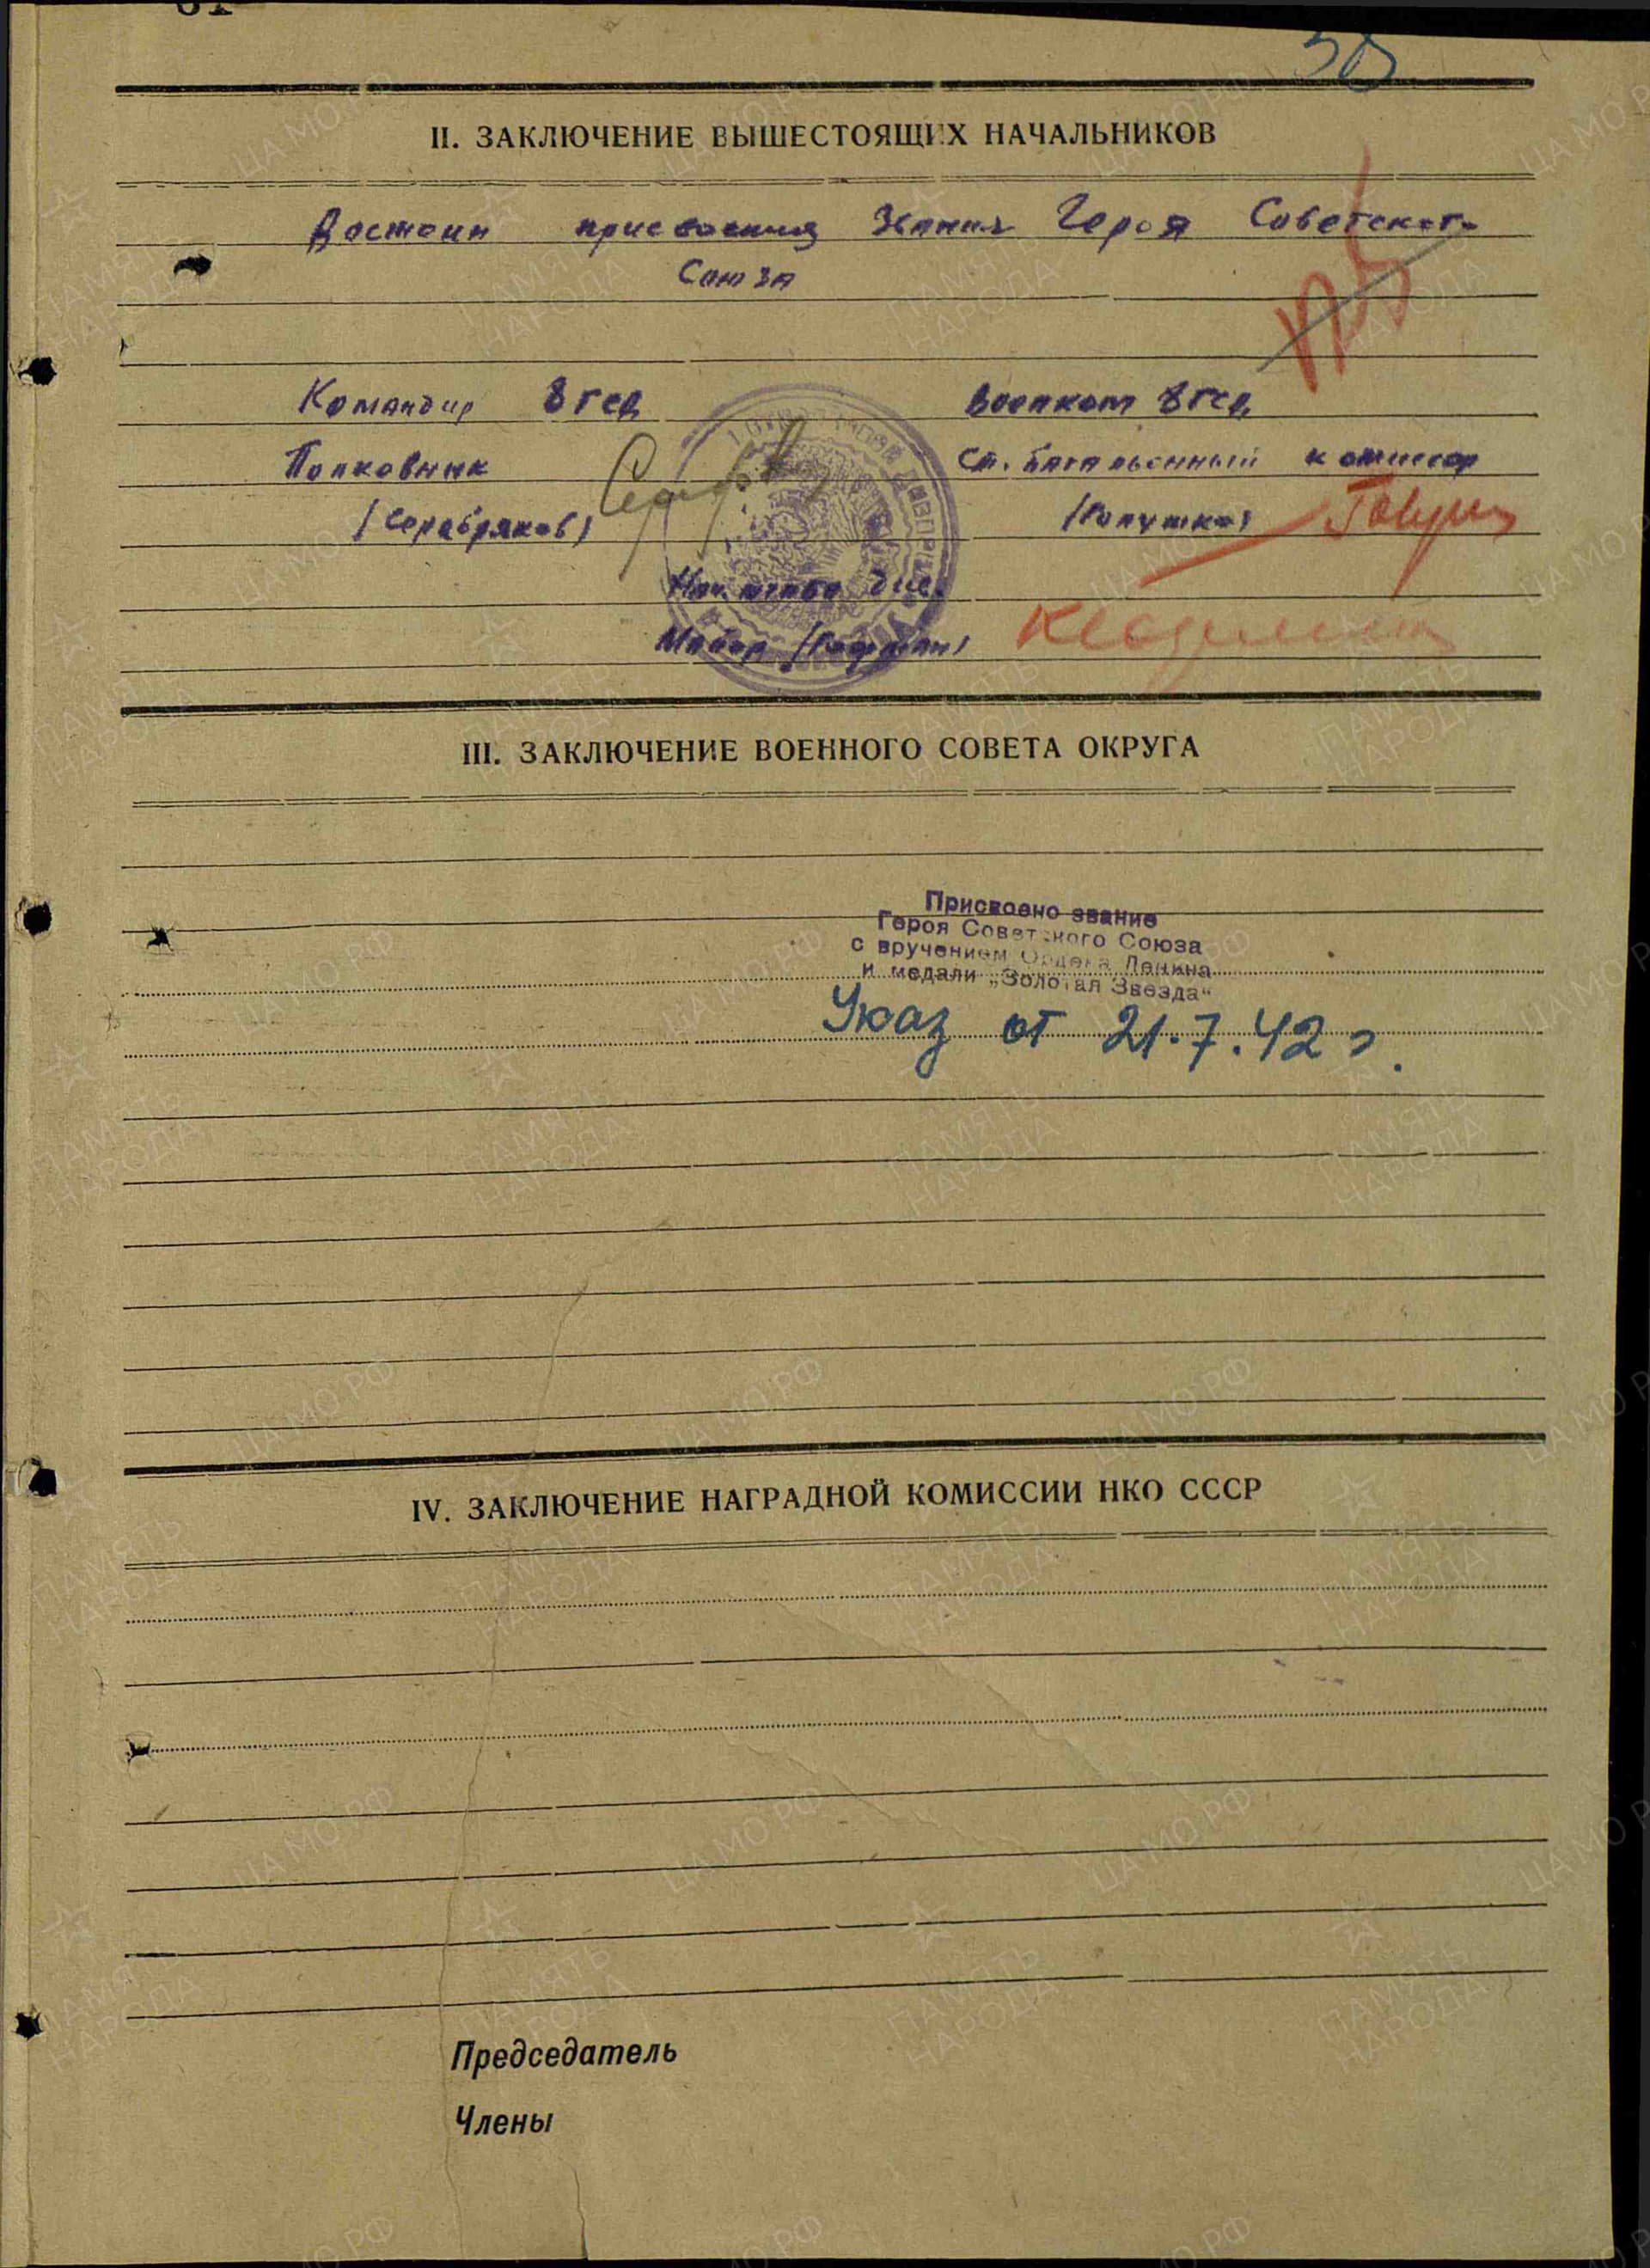 II. ЗАКЛЮЧЕНИЕ ВЫШЕСТОЯЩИХ НАЧАЛЬНИКОВ
Достоин присвоения Звания Героя Советского
Союза
Командир 8 гсд Военком 8 гсд
Полковник Ст. батальонный комиссар
(Серебряков)
Нач. штаба див.
Майор
III. ЗАКЛЮЧЕНИЕ ВОЕННОГО СОВЕТА ОКРУГА
Присвоено звание
Героя Советского Союза
с вручением Ордена Ленина
и медали „Золотая Звезда“
Указ от 21.7.42 г.
IV. ЗАКЛЮЧЕНИЕ НАГРАДНОЙ КОМИССИИ НКО СССР
Председатель
Члены
ПАМЯТЬ
НАРОДА
ЦА МО РФ